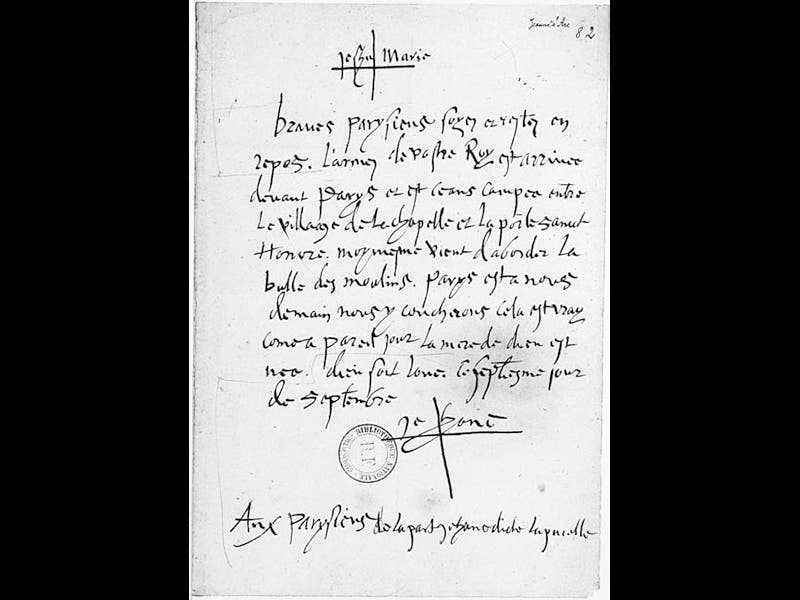 Jeanne d'Arc
82
Jehu Marie
braves parysiens soyez et restez en
repos. L'armee de vostre Roy est arrivee
devant Parys et est ceans campee entre
Le village de La chapelle et La porte sainct
Honore. moy meme vient d'aborder La
butte des moulins. Parys est a nous
demain nous y coucherons cela est vray
come a pareil jour La mere de dieu est
nee. dieu soit loue. ce septiesme jour
de septembre
BIBLIOTHEQUE NATIONALE
R.F.
Aux parysiens de la part jehane dicte La pucelle